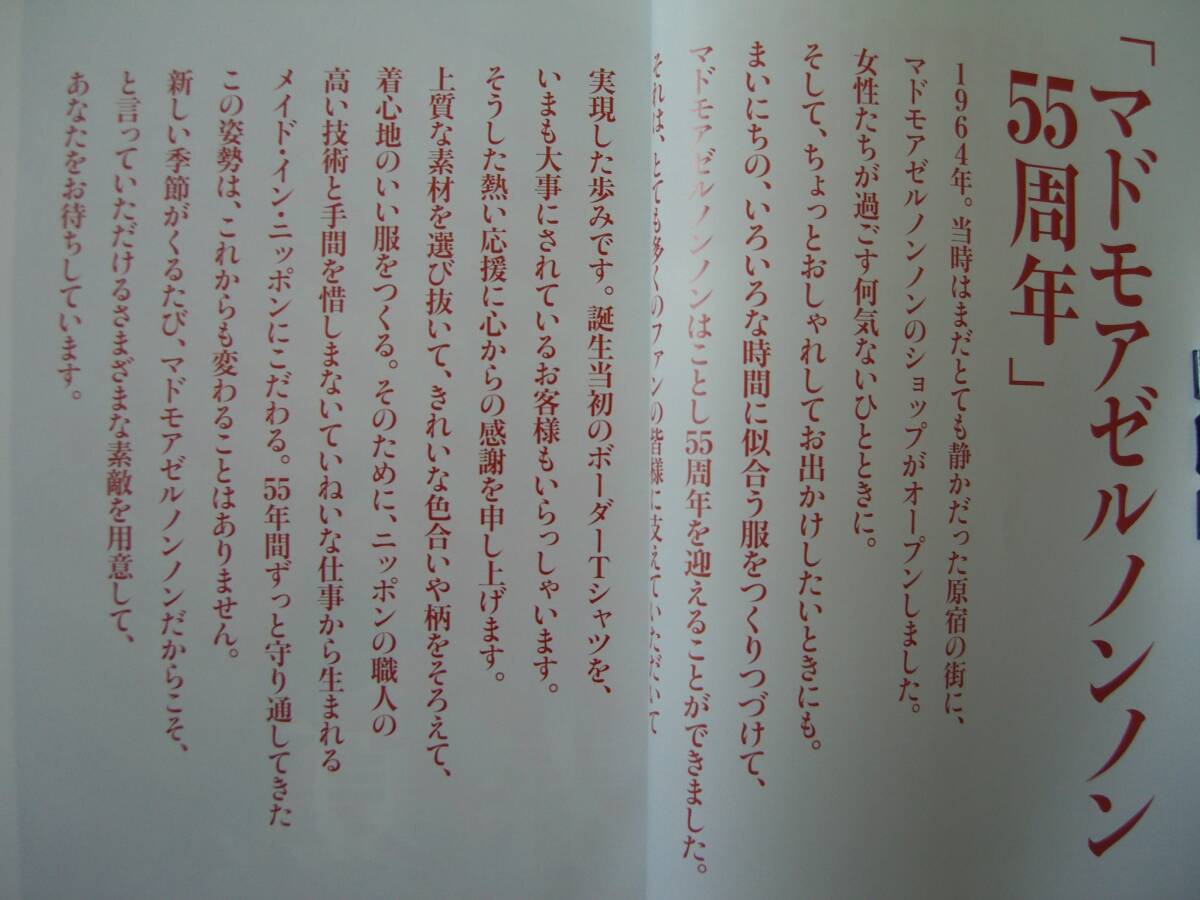 「マドモアゼルノンノン
55周年」
1964年。当時はまだとても静かだった原宿の街に、
マドモアゼルノンノンのショップがオープンしました。
女性たちが過ごす何気ないひとときに。
そして、ちょっとおしゃれしてお出かけしたいときにも。
まいにちの、いろいろな時間に似合う服をつくりつづけて、
マドモアゼルノンノンはことし55周年を迎えることができました。
それは、とても多くのファンの皆様に支えていただいて
実現した歩みです。誕生当初のボーダーTシャツを、
いまも大事にされているお客様もいらっしゃいます。
そうした熱い応援に心からの感謝を申し上げます。
上質な素材を選び抜いて、きれいな色合いや柄をそろえて、
着心地のいい服をつくる。そのために、ニッポンの職人の
高い技術と手間を惜しまないていねいな仕事から生まれる
メイド・イン・ニッポンにこだわる。55年間ずっと守り通してきた
この姿勢は、これからも変わることはありません。
新しい季節がくるたび、マドモアゼルノンノンだからこそ、
と言っていただけるさまざまな素敵を用意して、
あなたをお待ちしています。